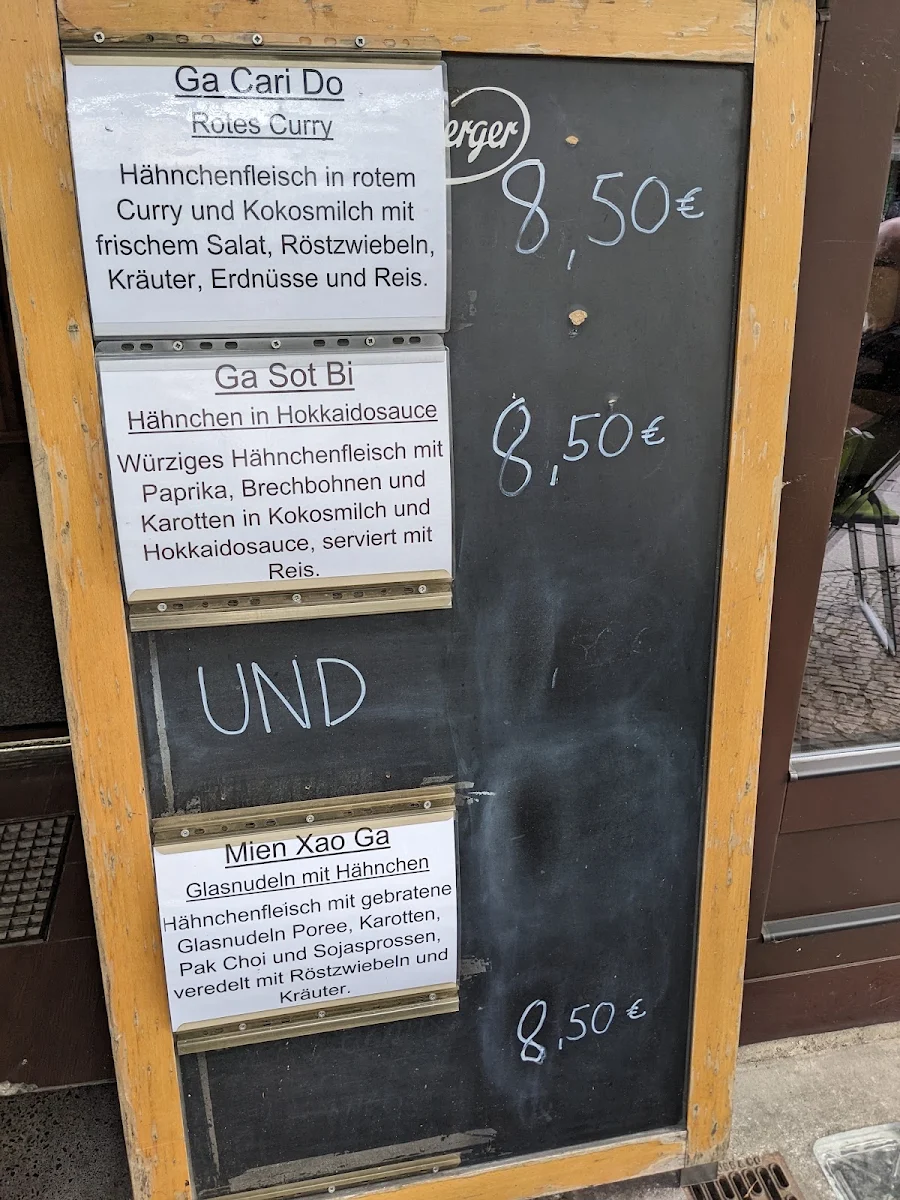 Ga Cari Do
Rotes Curry
Hähnchenfleisch in rotem
Curry und Kokosmilch mit
frischem Salat, Röstzwiebeln,
Kräuter, Erdnüsse und Reis.
erger
8,50€
Ga Sot Bi
Hähnchen in Hokkaidosauce
Würziges Hähnchenfleisch mit
Paprika, Brechbohnen und
Karotten in Kokosmilch und
Hokkaidosauce, serviert mit
Reis.
8,50€
UND
Mien Xao Ga
Glasnudeln mit Hähnchen
Hähnchenfleisch mit gebratene
Glasnudeln Poree, Karotten,
Pak Choi und Sojasprossen,
veredelt mit Röstzwiebeln und
Kräuter.
8,50€